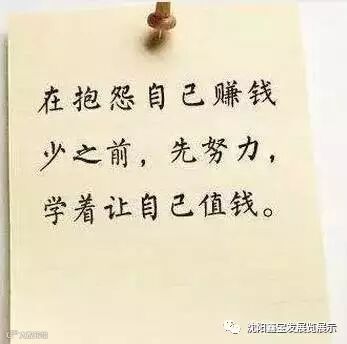 在抱怨自己赚钱
少之前，先努力，
学着让自己值钱。
沈阳鑫宝发展览展示